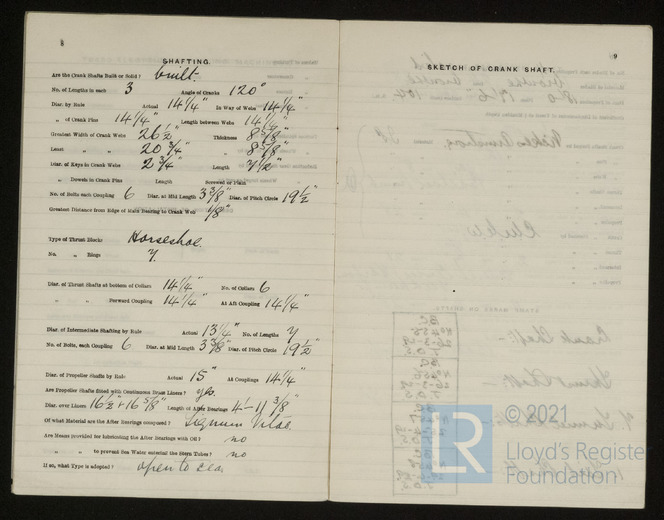 8
SHAFTING.
Are the Crank Shafts Built or Solid? built.
No. of Lengths in each 3 Angle of Cranks 120°
Diar. by Rule Actual 14 1/4" In Way of Webs 14 1/4"
" of Crank Pins 14 1/4" Length between Webs 14 1/4"
Greatest Width of Crank Webs 26 1/2" Thickness 8 5/8"
Least " " 20 3/4" " 8 5/8"
Diar. of Keys in Crank Webs 2 3/4" Length 7 1/2"
" Dowels in Crank Pins Length Screwed or Plain
No. of Bolts each Coupling 6 Diar. at Mid Length 3 3/8" Diar. of Pitch Circle 19 1/2"
Greatest Distance from Edge of Main Bearing to Crank Web 1/8"
Type of Thrust Blocks Horseshoe.
No. " Rings 7.
Diar. of Thrust Shafts at bottom of Collars 14 1/4" No. of Collars 6
" " Forward Coupling 14 1/4" At Aft Coupling 14 1/4"
Diar. of Intermediate Shafting by Rule Actual 13 1/4" No. of Lengths 7
No. of Bolts, each Coupling 6 Diar. at Mid Length 3 3/8" Diar. of Pitch Circle 19 1/2"
Diar. of Propeller Shafts by Rule Actual 15" At Couplings 14 1/4"
Are Propeller Shafts fitted with Continuous Brass Liners? yes.
Diar. over Liners 16 1/2" & 16 5/8" Length of After Bearings 4'-11 3/8"
Of what Material are the After Bearings composed? Lignum Vitae.
Are Means provided for lubricating the After Bearings with Oil? no
" " to prevent Sea Water entering the Stern Tubes? no
If so, what Type is adopted? open to sea
9
SKETCH OF CRANK SHAFT.
© 2021
LR
Lloyd's Register
Foundation